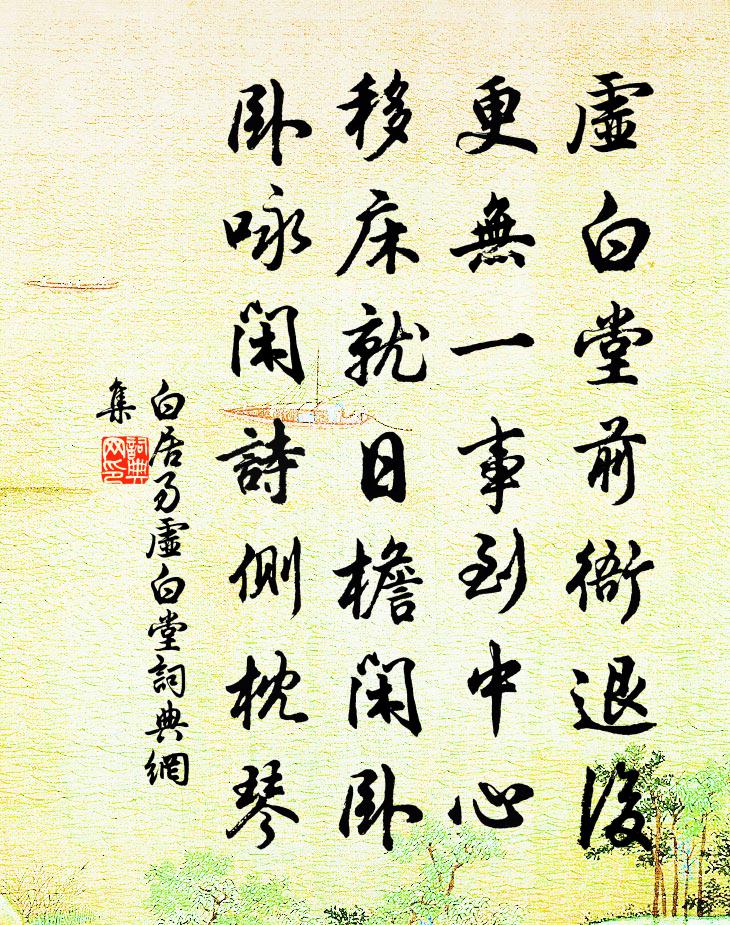 虛白堂前衙退後
更無一事到中心
移床就日檐閑卧
卧咏閑詩側枕琴
白居易虛白堂詞典網
集
詞典
网印